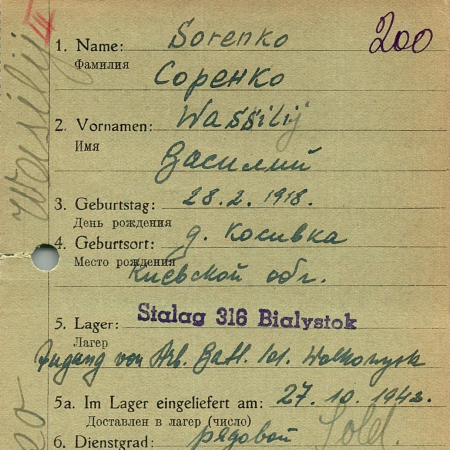 200
Wasilij
1. Name: Sorenko
Фамилия Соренко
2. Vornamen: Wassilij
Имя Василий
3. Geburtstag: 28.2.1918.
День рождения
4. Geburtsort: д. Косивка
Место рождения Киевской обг.
5. Lager: Stalag 316 Bialystok
Лагерь
Zugang von Arb. Batl. 101. Wolkowysk
5a. Im Lager eingeliefert am: 27. 10. 1942.
Доставлен в лагерь (число)
6. Dienstgrad: рядовой Sold.